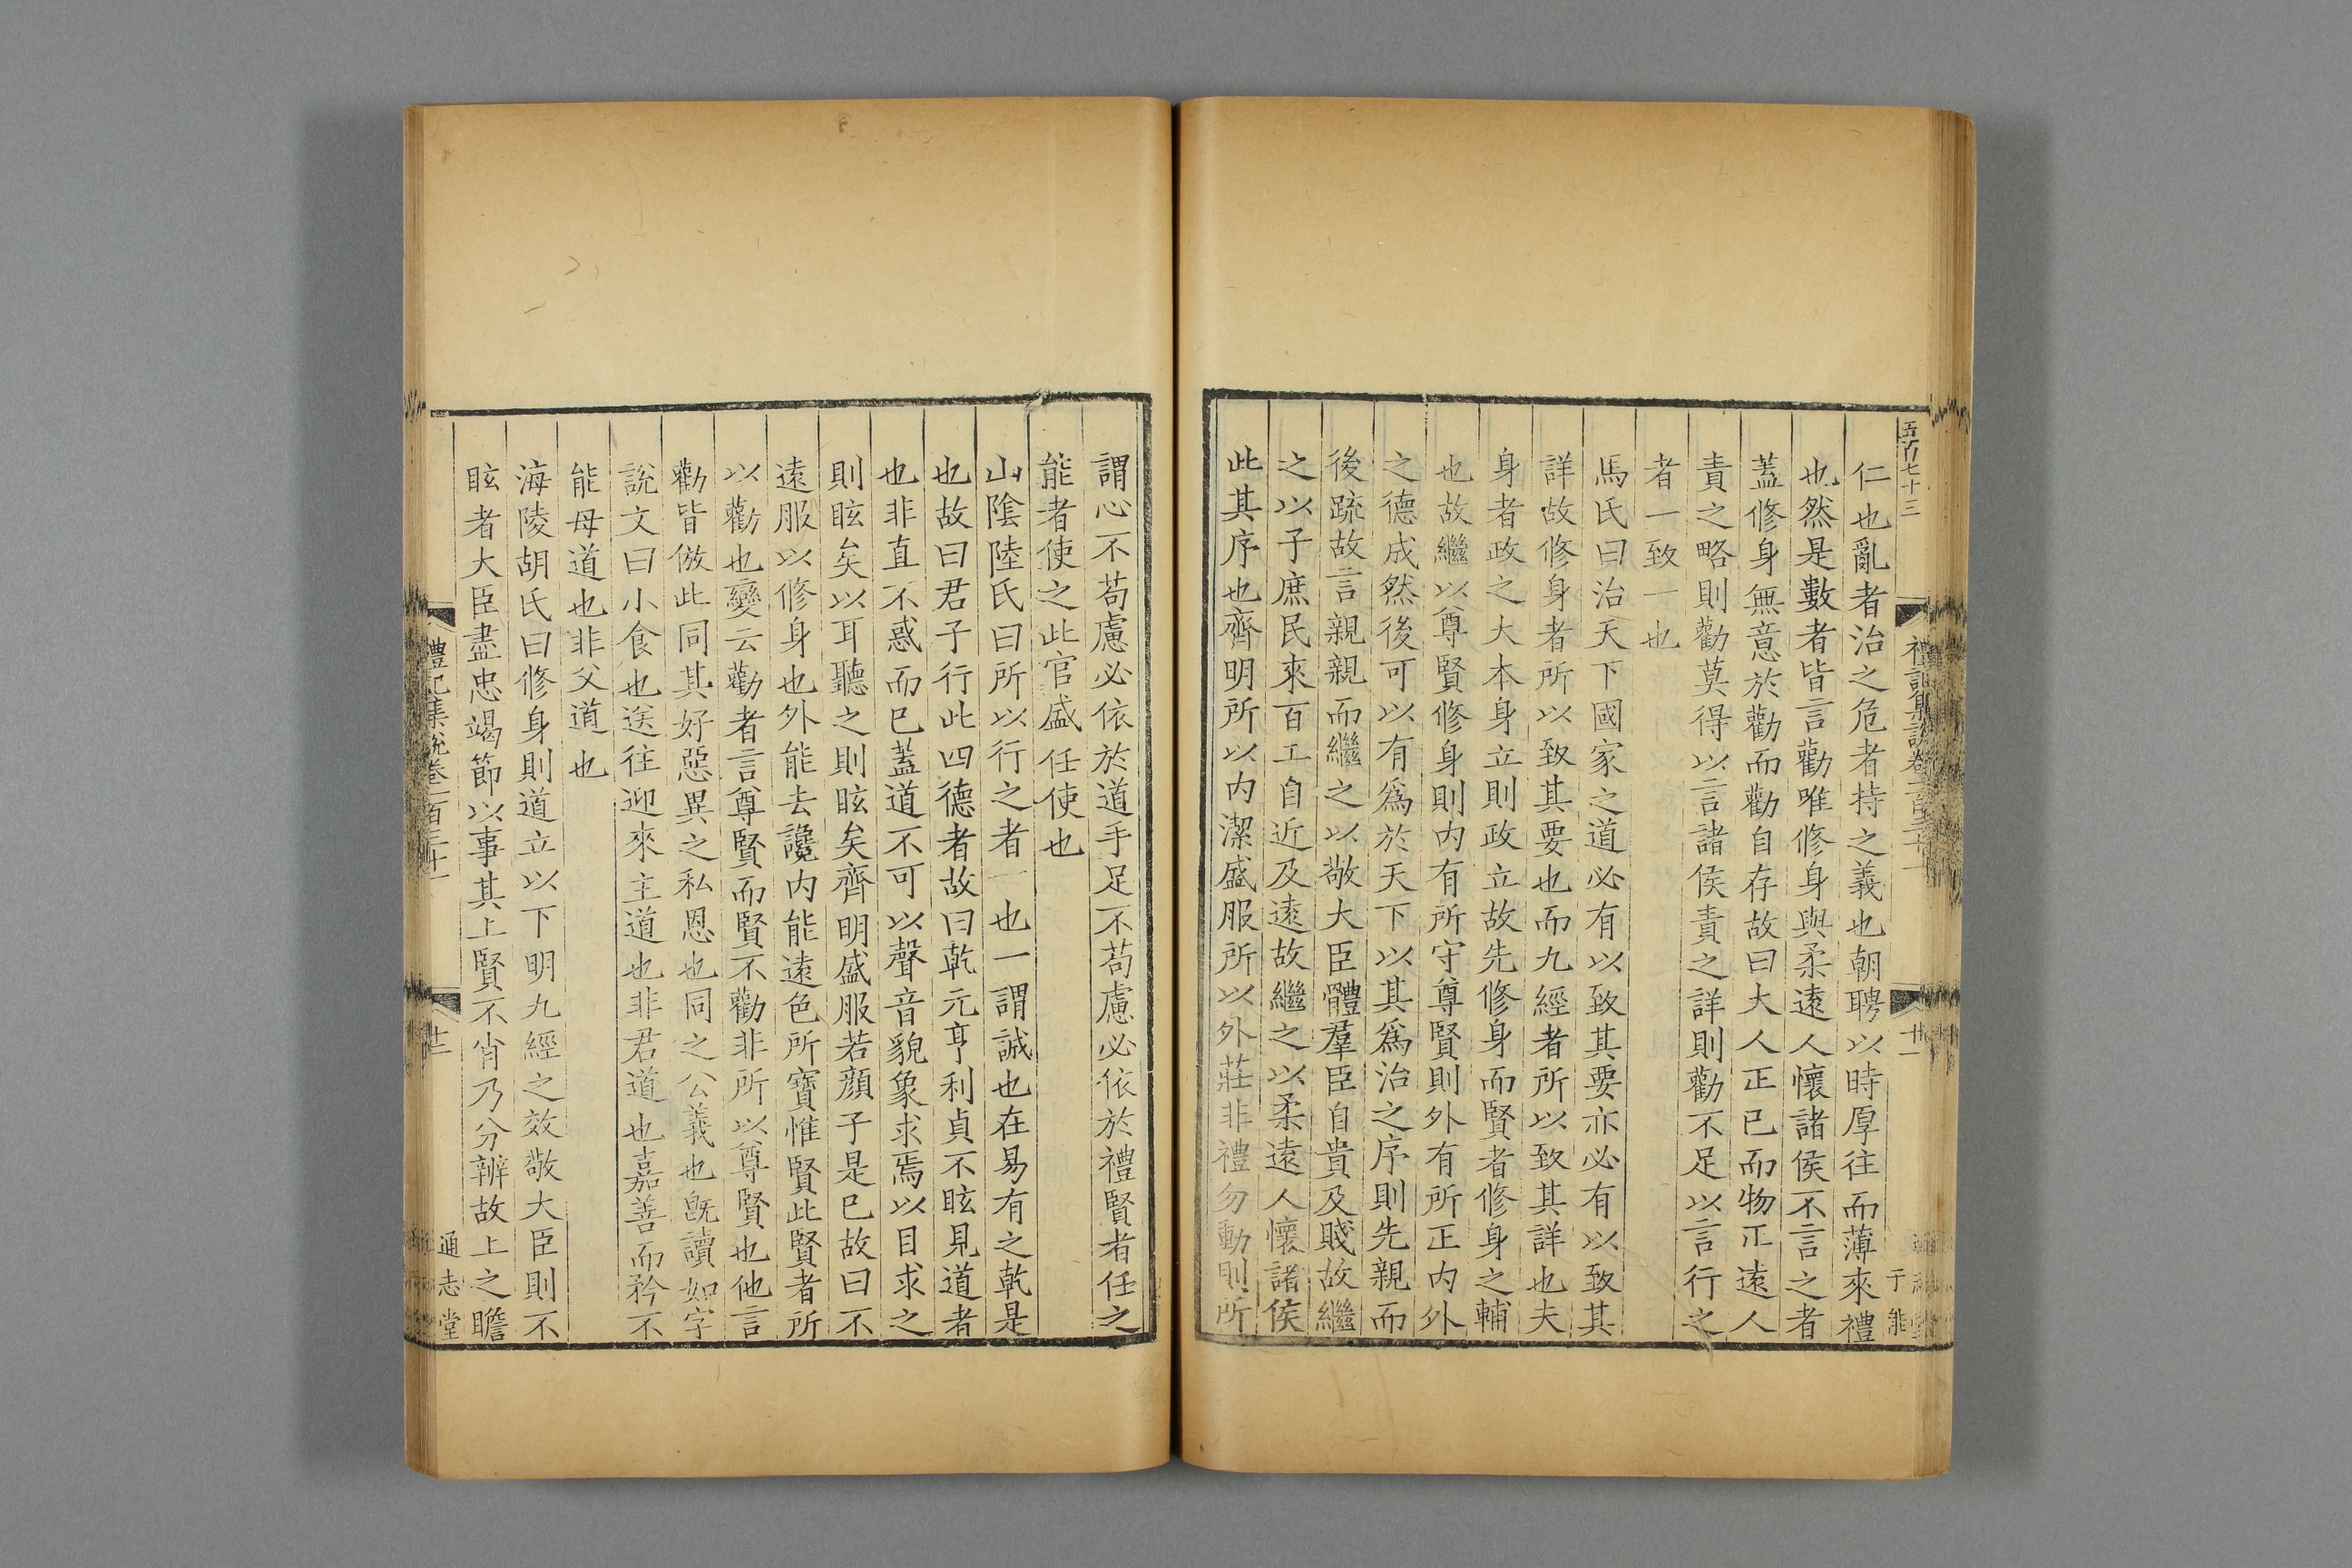 五百七十三
禮記集說卷一百三十一
廿一
于能
仁也亂者治之危者持之義也朝聘以時厚往而薄來禮
也然是數者皆言勸唯修身與柔遠人懷諸侯不言之者
蓋修身無意於勸而勸自存故曰大人正已而物正遠人
責之略則勸莫得以言諸侯責之詳則勸不足以言行之
者一致一也
馬氏曰治天下國家之道必有以致其要亦必有以致其
詳故修身者所以致其要也而九經者所以致其詳也夫
身者政之大本身立則政立故先修身而賢者修身之輔
也故繼以尊賢修身則內有所守尊賢則外有所正內外
之德成然後可以有爲於天下以其爲治之序則先親而
後疏故言親親而繼之以敬大臣體羣臣自貴及賤故繼
之以子庶民來百工自近及遠故繼之以柔遠人懷諸侯
此其序也齊明所以內潔盛服所以外莊非禮勿動則所
謂心不苟慮必依於道手足不苟慮必依於禮賢者任之
能者使之此官盛任使也
山陰陸氏曰所以行之者一也一謂誠也在易有之乾是
也故曰君子行此四德者故曰乾元亨利貞不眩見道者
也非直不惑而已蓋道不可以聲音貌象求焉以目求之
則眩矣以耳聽之則眩矣齊明盛服若顔子是已故曰不
遠服以修身也外能去讒內能遠色所寶惟賢此賢者所
以勸也變云勸者言尊賢而賢不勸非所以尊賢也他言
勸皆倣此同其好惡異之私恩也同之公義也旣讀如字
說文曰小食也送往迎來主道也非君道也嘉善而矜不
能母道也非父道也
海陵胡氏曰修身則道立以下明九經之效敬大臣則不
眩者大臣盡忠竭節以事其上賢不肖乃分辨故上之瞻
禮記集說卷一百三十一
廿二
通志堂